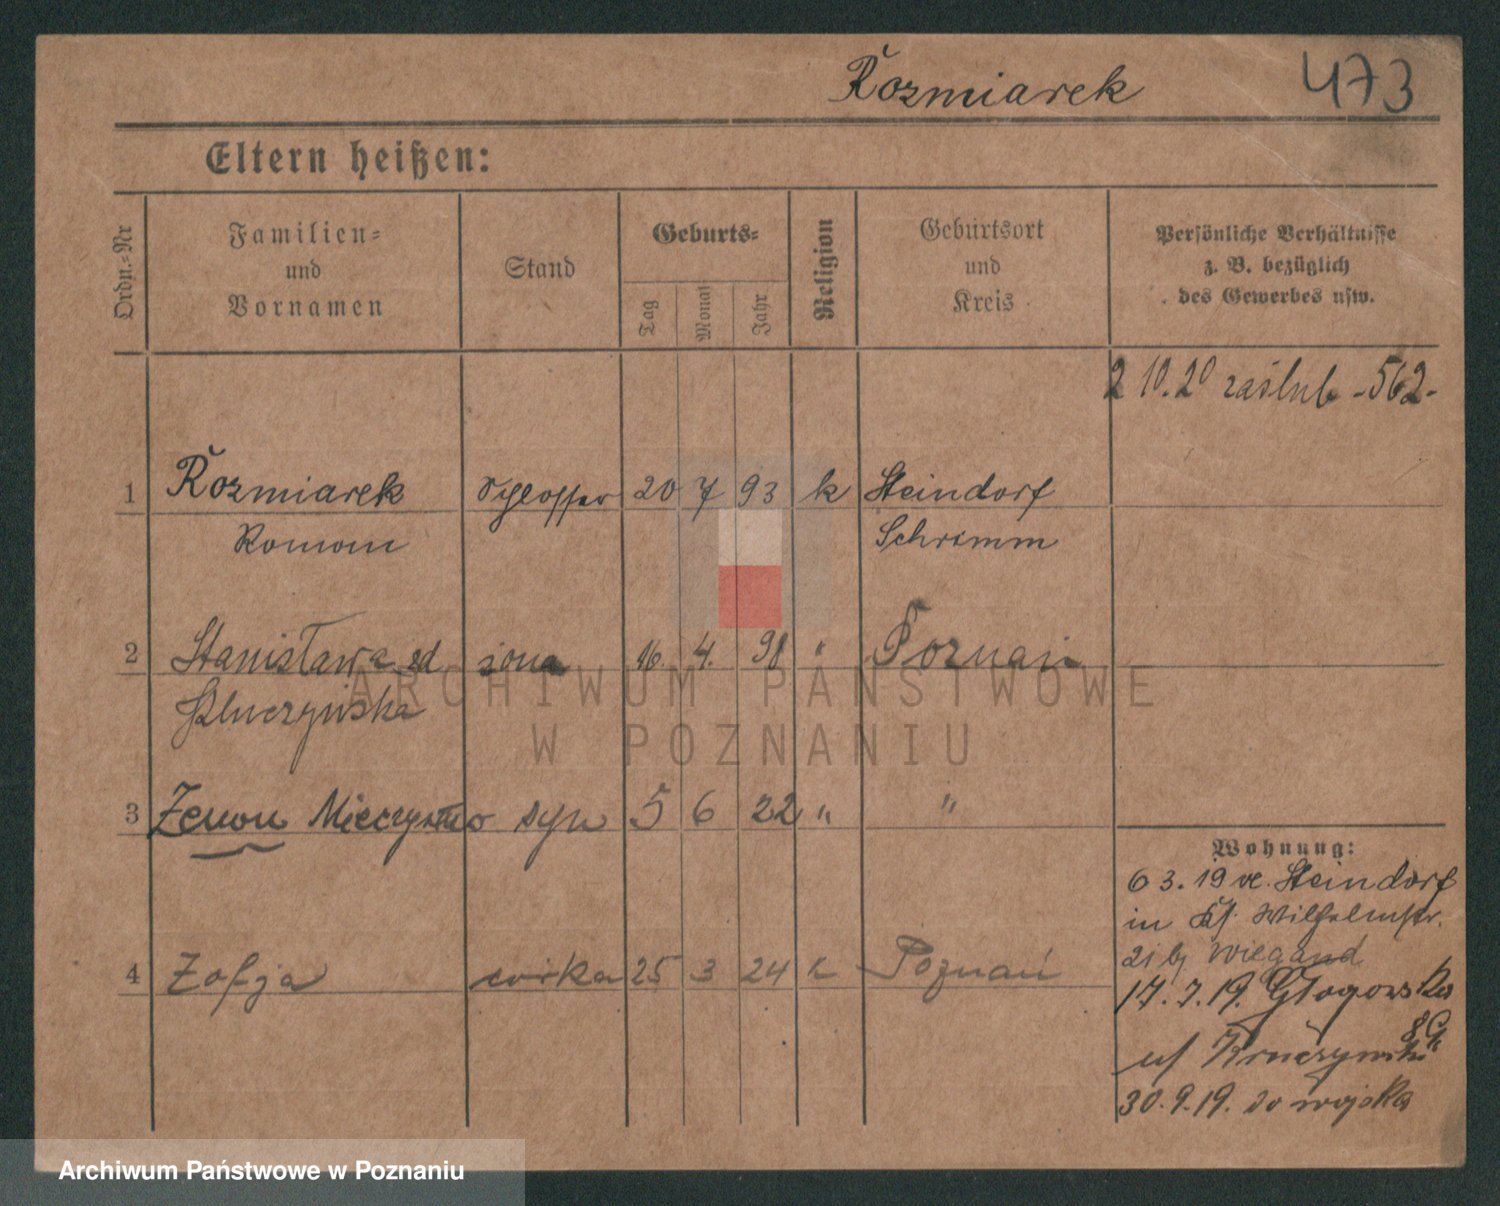 Rozmiarek 473
Eltern heißen:
Ordn.-Nr
Familien-
und
Vornamen
Stand
Geburts-
Tag
Monat
Jahr
Religion
Geburtsort
und
Kreis
Persönliche Verhältnisse
z. B. bezüglich
des Gewerbes usw.
2 10.20 zaślub -562-
1 Rozmiarek Schlosser 20 7 93 k Steindorf
Roman Schrimm
2 Stanisława zd żona 16. 4. 98 " Poznań
3 Zenon Mieczysław syn 5 6 22 " "
4 Zofja córka 25 3 24 k Poznań
Wohnung:
6 3.19 v. Steindorf
in Wilhelmstr.
21 bj Wiegand
17.7.19. Głogowska
30.9.19. do wojska
ARCHIWUM PAŃSTWOWE
W POZNANIU
Archiwum Państwowe w Poznaniu